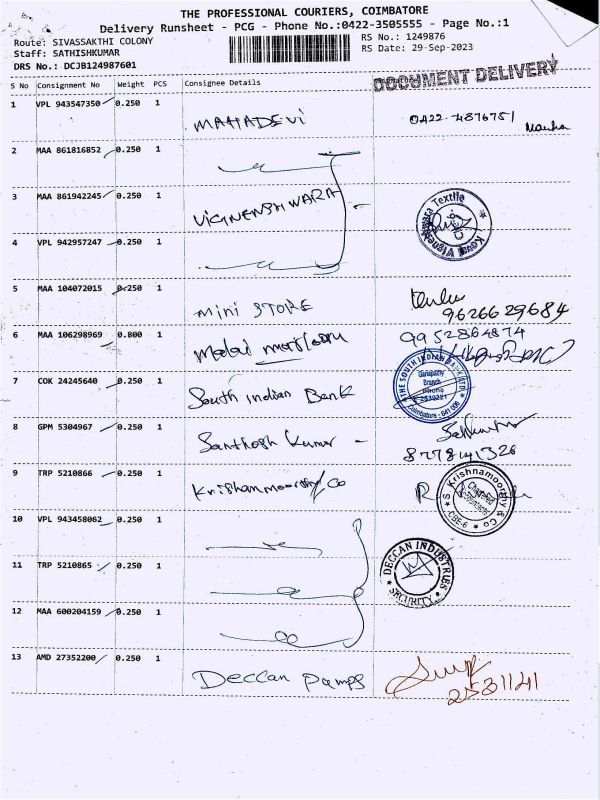 THE PROFESSIONAL COURIERS, COIMBATORE
Delivery Runsheet - PCG - Phone No.:0422-3505555 - Page No.:1
Route: SIVASSAKTHI COLONY
RS No.: 1249876
Staff: SATHISHKUMAR
RS Date: 29-Sep-2023
DRS No.: DCJB124987601
DOCUMENT DELIVERY
S No Consignment No Weight PCS Consignee Details
1 VPL 943547350 0.250 1 MAHADEVI 0422-4876751
2 MAA 861816852 0.250 1
3 MAA 861942245 0.250 1 VIGNENSHWARA
Textile
4 VPL 942957247 0.250 1
5 MAA 104072015 0.250 1 mini STORE
9626629684
6 MAA 106298969 0.800 1 9952864874
7 COK 24245640 0.250 1 South indian Bank
THE SOUTH INDIAN BANK LTD
Ganapathy
Branch
Coimbatore - 641 006
8 GPM 5304967 0.250 1 Santhosh Kumar -
8778141326
9 TRP 5210866 0.250 1 Krishnamoorthy Co
S. Krishnamoorthy & Co
Chartered
Accountants
CBE-6
10 VPL 943458062 0.250 1
11 TRP 5210865 0.250 1
DECCAN INDUSTRIES
SECURITY
12 MAA 600204159 0.250 1
13 AMD 27352200 0.250 1 Deccan Pumps